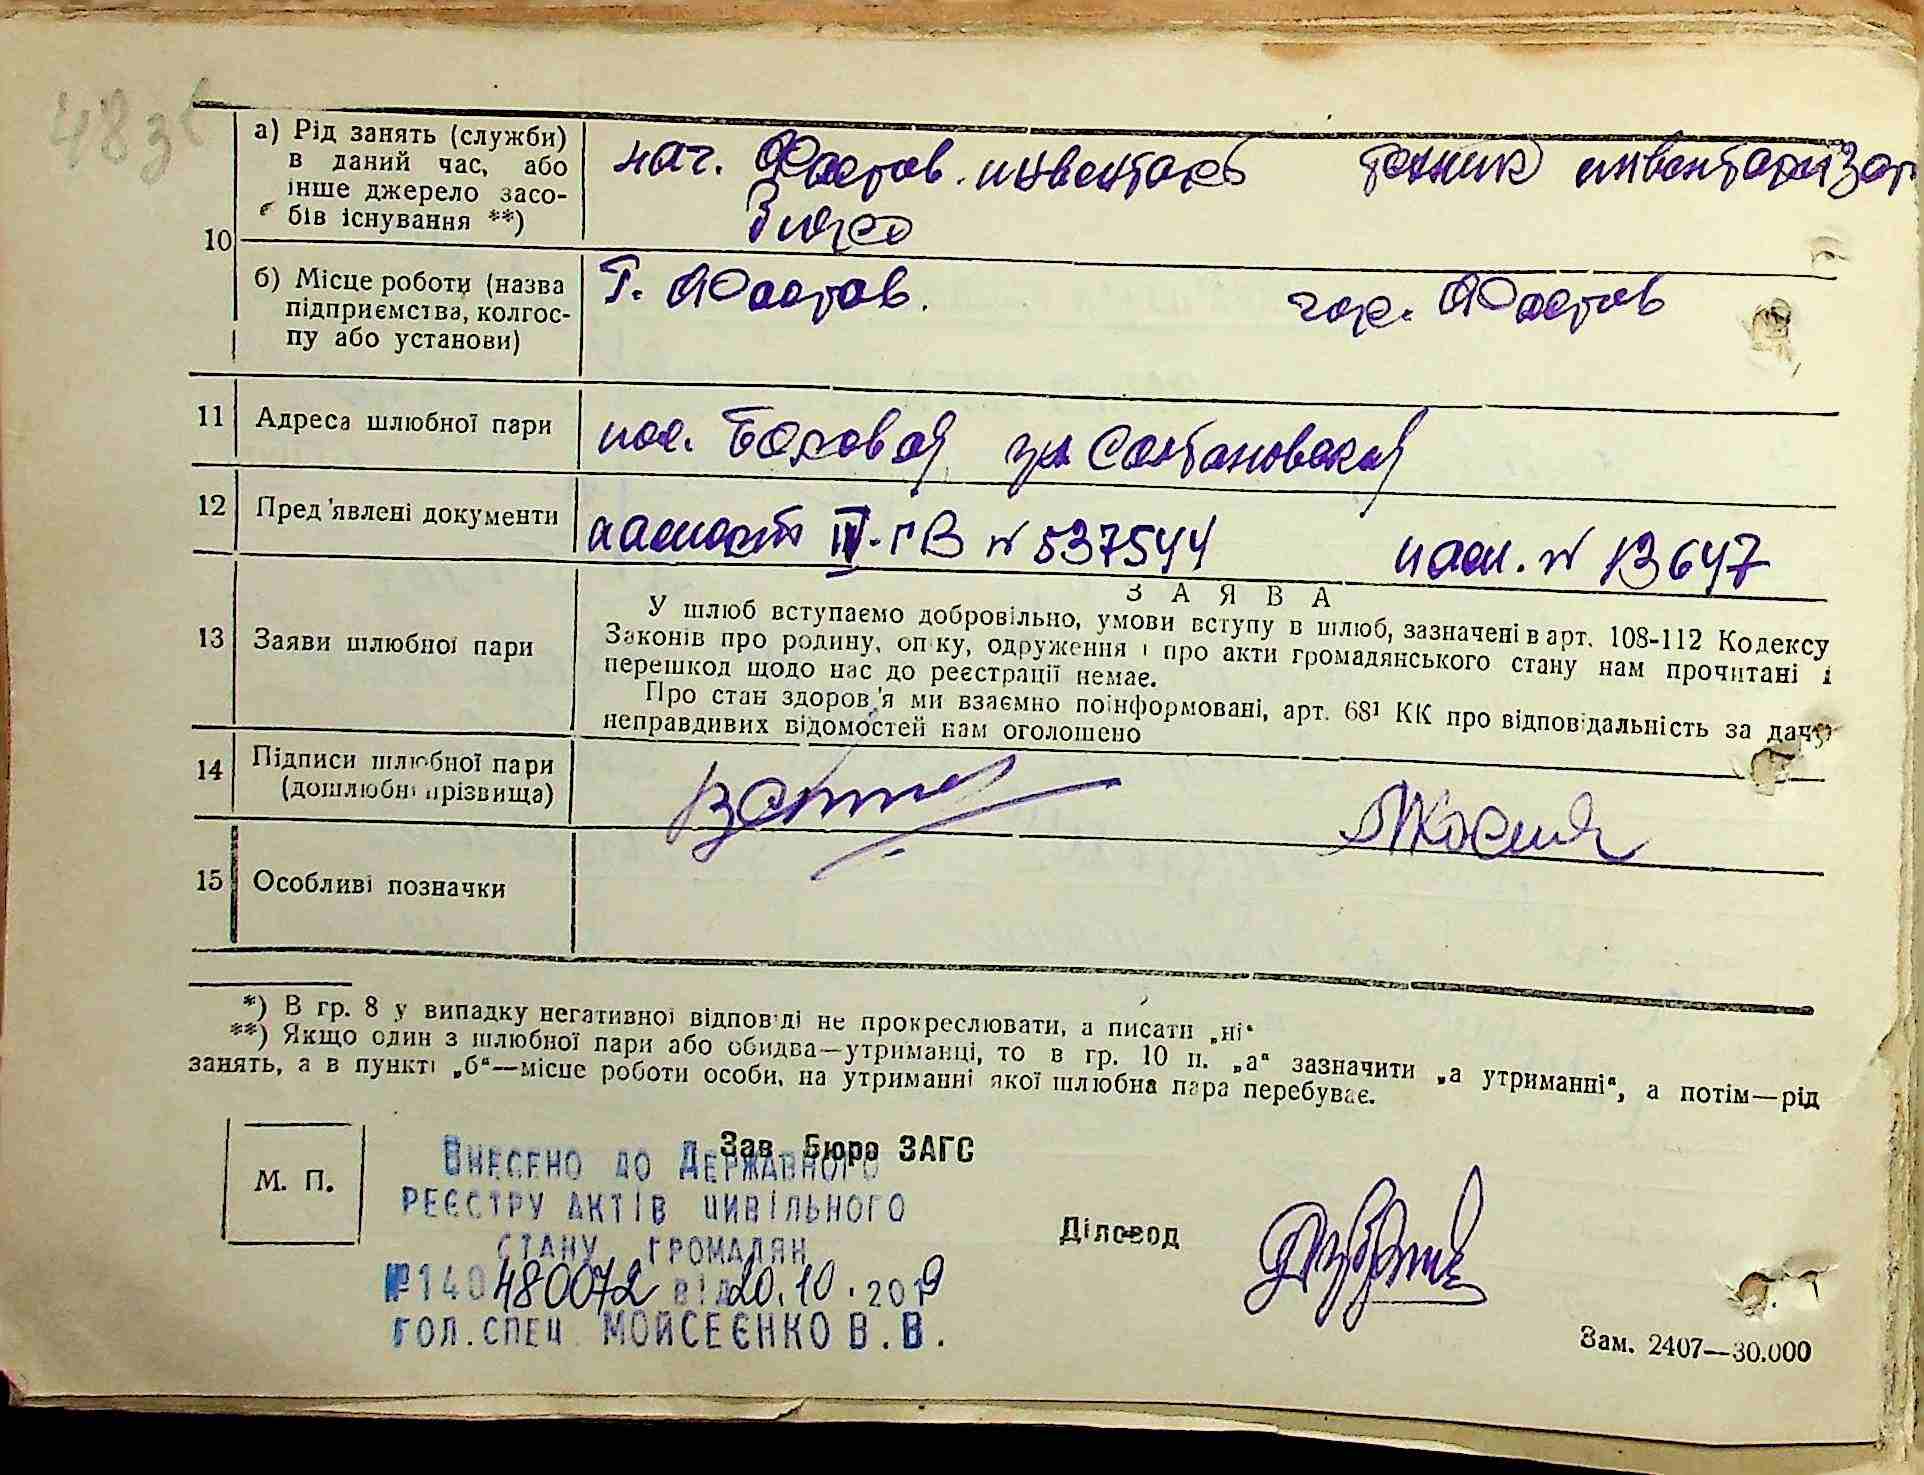 48 зв
10
а) Рід занять (служби)
в даний час, або
інше джерело засо-
бів існування **)
нач. Фастов. инвентар
бюро
техник инвентаризат
б) Місце роботи (назва
підприємства, колгос-
пу або установи)
г. Фастов.
гор. Фастов
11 Адреса шлюбної пари
пос. Боровая ул Солтановская
12 Пред'явлені документи
паспорт IV-ГВ № 537544
пасп. № 13647
13 Заяви шлюбної пари
ЗАЯВА
У шлюб вступаємо добровільно, умови вступу в шлюб, зазначені в арт. 108-112 Кодексу
Законів про родину, опіку, одруження і про акти громадянського стану нам прочитані і
перешкод щодо нас до реєстрації немає.
Про стан здоров'я ми взаємно поінформовані, арт. 68¹ КК про відповідальність за дачу
неправдивих відомостей нам оголошено
14 Підписи шлюбної пари
(дошлюбні прізвища)
15 Особливі позначки
*) В гр. 8 у випадку негативної відповіді не прокреслювати, а писати „ні“
**) Якщо один з шлюбної пари або обидва—утриманці, то в гр. 10 п. „а“ зазначити „а утриманні“, а потім—рід
занять, а в пункті „б“—місце роботи особи, на утриманні якої шлюбна пара перебуває.
М. П.
Зав. Бюро ЗАГС
Внесено до Державного
реєстру актів цивільного
стану громадян
№ 140480072 від 20.10.2019
гол. спец. Мойсеєнко В. В.
Діловод
Зам. 2407—30.000